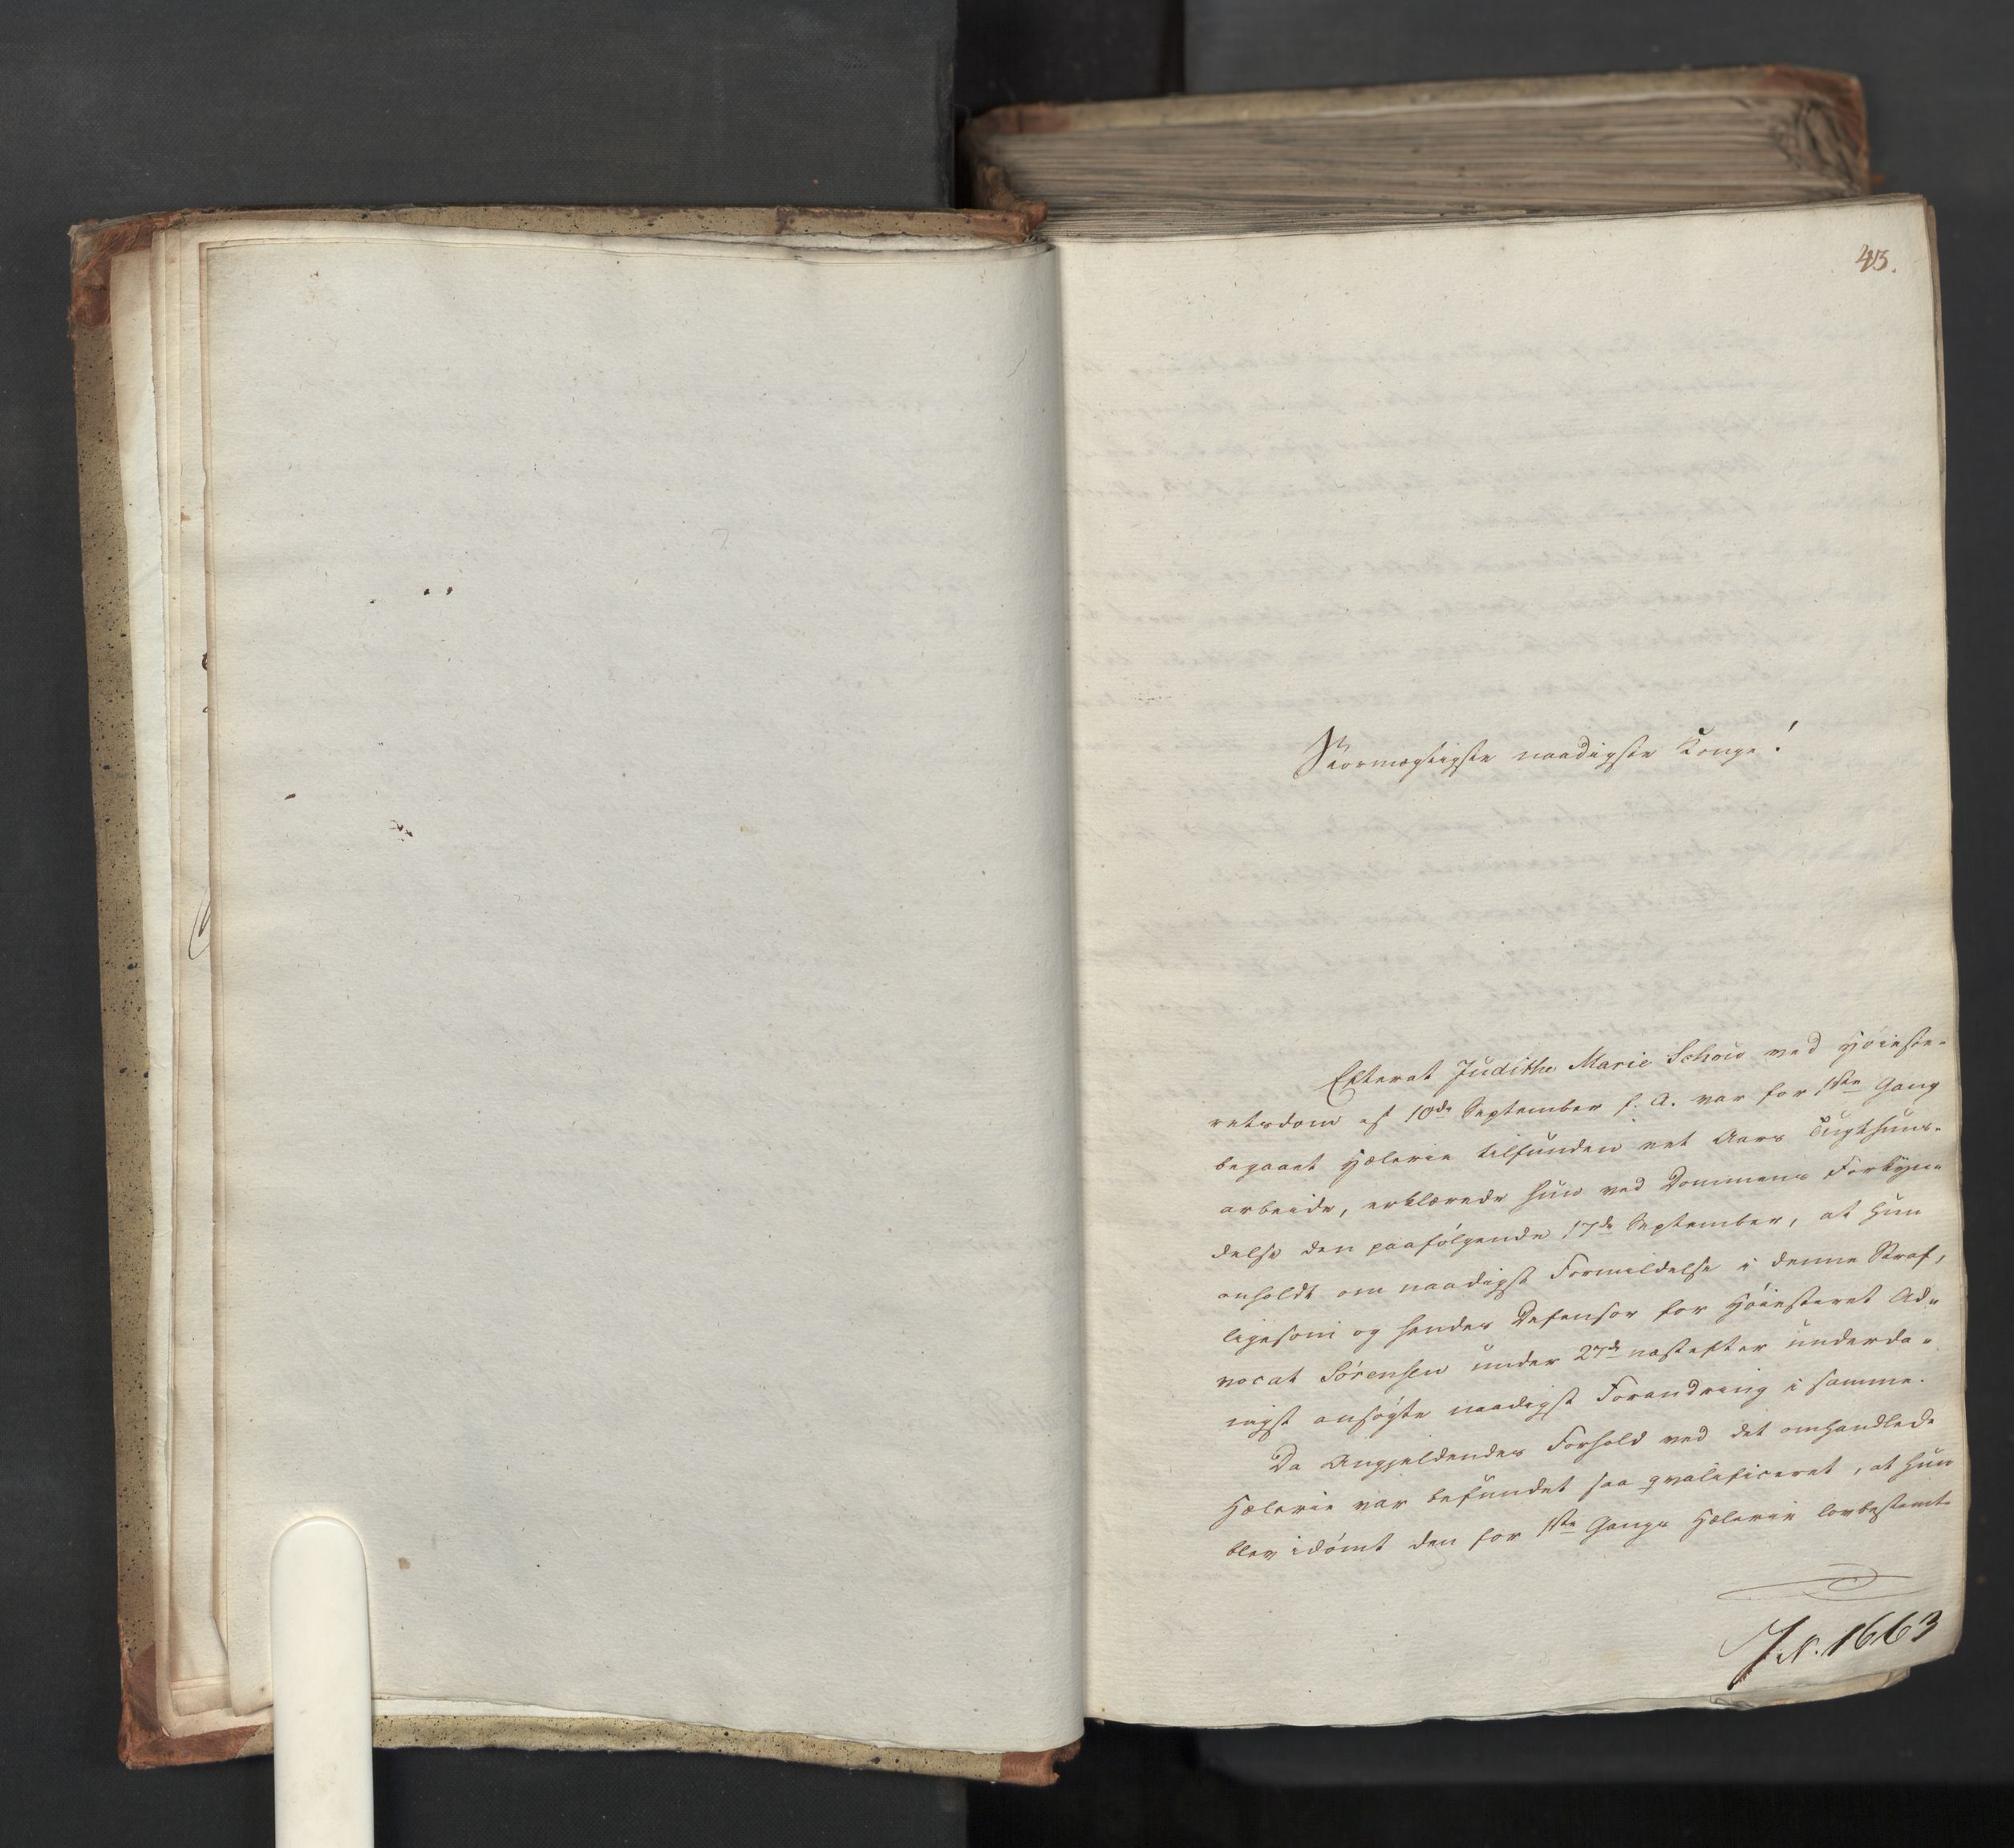 43.
Stormægtigste naadigste Konge!
Efterat Judithe Marie Schou ved Høieste-
retsdom af 10de September f. A. var for 1ste Gang
begaaet Hælerie tilfunden eet Aars Tugthuus-
arbeide, erklærede hun ved Dommens Forkyn-
delse den paafølgende 17de September, at hun
anholdt om naadigst Formildelse i denne Straf,
ligesom og hendes Defensor for Høiesteret Ad-
vocat Sørensen under 27de næstefter underda-
nigst ansøgte naadigst Forandring i samme.
Da Angjeldendes Forhold ved det omhandlede
Hælerie var befundet saa qvalificeret, at hun
blev idømt den for 1ste Gangs Hælerie lovbestemte
J. N. 1663